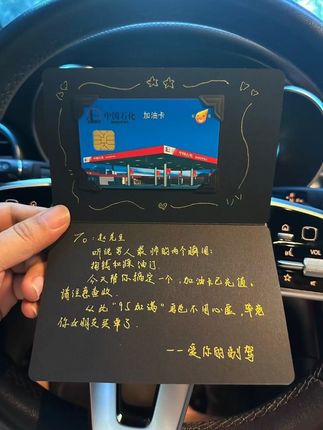 中国石化
加油卡
To：赵先生
听说男人最帅的两个瞬间：
掏钱和踩油门
今天帮你搞定一个，加油卡已充值，
请注意查收.
从此“95加满”再也不用心虚，毕竟
你女朋友买单了.
——爱你的副驾